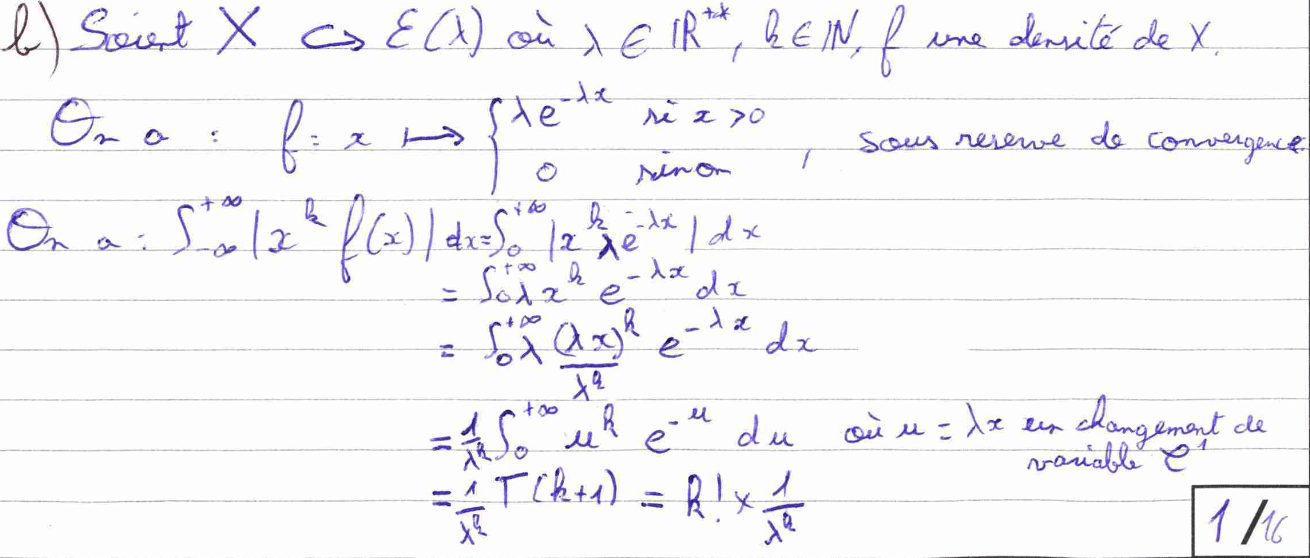 b) Soient X ↪ ℰ(λ) où λ ∈ ℝ⁺*, k ∈ ℕ, f une densité de X.
On a : f = x ↦ { λe^{-λx} si x > 0
0 sinon , sous reserve de convergence
On a : ∫_{-∞}^{+∞} |x^k f(x)| dx = ∫_0^{+∞} |x^k λe^{-λx}| dx
= ∫_0^{+∞} λ x^k e^{-λx} dx
= ∫_0^{+∞} λ \frac{(λx)^k}{λ^k} e^{-λx} dx
= \frac{1}{λ^k} ∫_0^{+∞} u^k e^{-u} du où u = λx un changement de
variable 𝒞¹
= \frac{1}{λ^k} Γ(k+1) = k! × \frac{1}{λ^k}
1/16